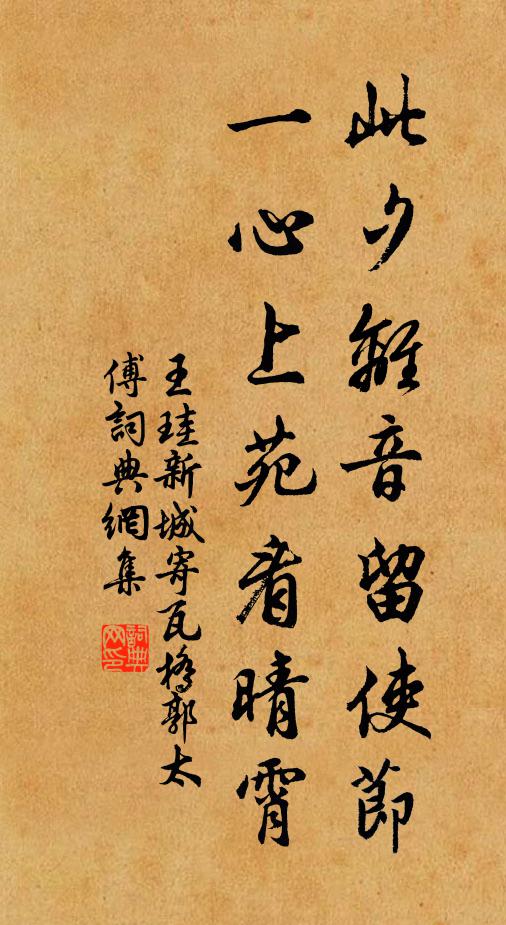 此夕離音留使節
一心上苑看晴霄
王珪新城寄瓦橋郭太
傅詞典網集
詞典
网印